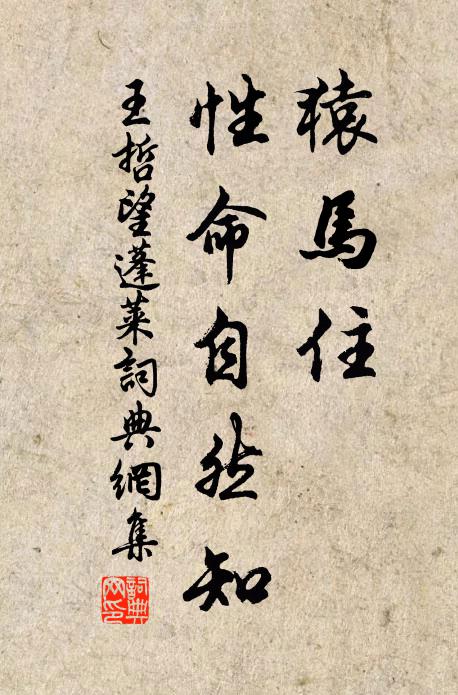 猿馬住
性命自然知
王哲望蓬萊詞典網集
詞典
网印